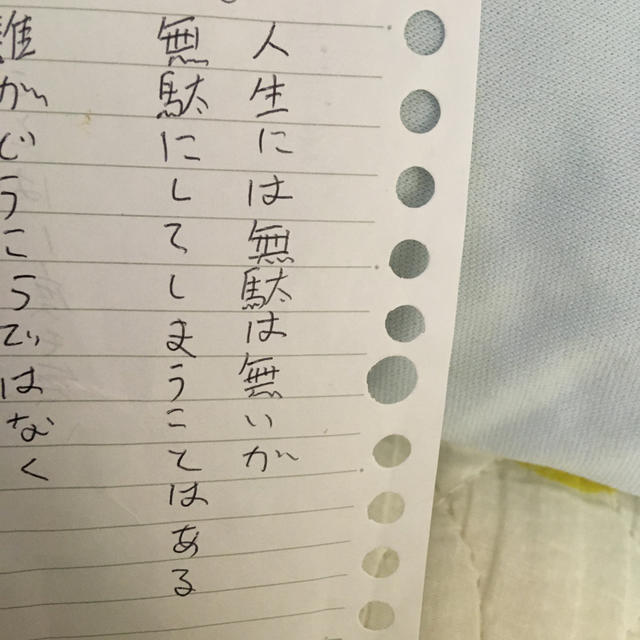 人生には無駄は無いが
無駄にしてしまうことはある
誰がどうこうではなく